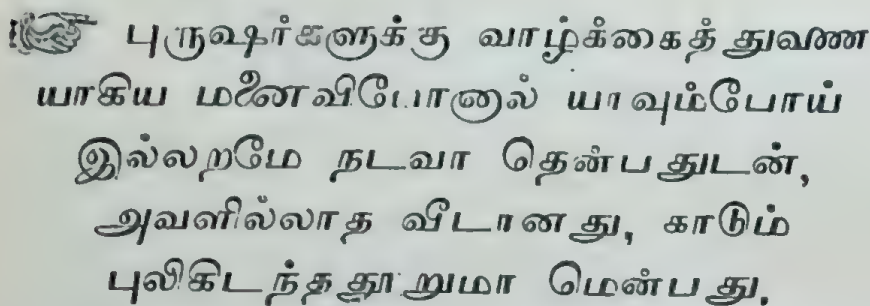 புருஷர்களுக்கு வாழ்க்கைத் துணை
யாகிய மனைவிபோனால் யாவும்போய்
இல்லறமே நடவா தென்பதுடன்,
அவளில்லாத வீடானது, காடும்
புலிகிடந்த தூறுமா மென்பது.